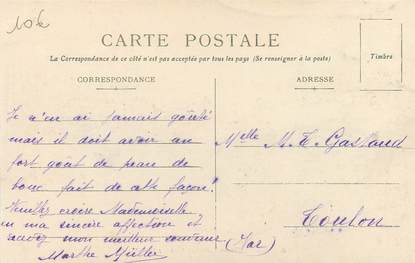 10€
CARTE POSTALE
La Correspondance de ce côté n'est pas acceptée par tous les pays (Se renseigner à la poste)
Timbre
CORRESPONDANCE
ADRESSE
Je n'en ai jamais goûté
mais il doit avoir un
fort goût de peau de
bouc fait de cette façon!
Veuillez croire Mademoiselle
en ma sincère affection et
recevez mon meilleur souvenir
Marthe Müller
Melle M. T. Gastaud
Toulon
(Var)